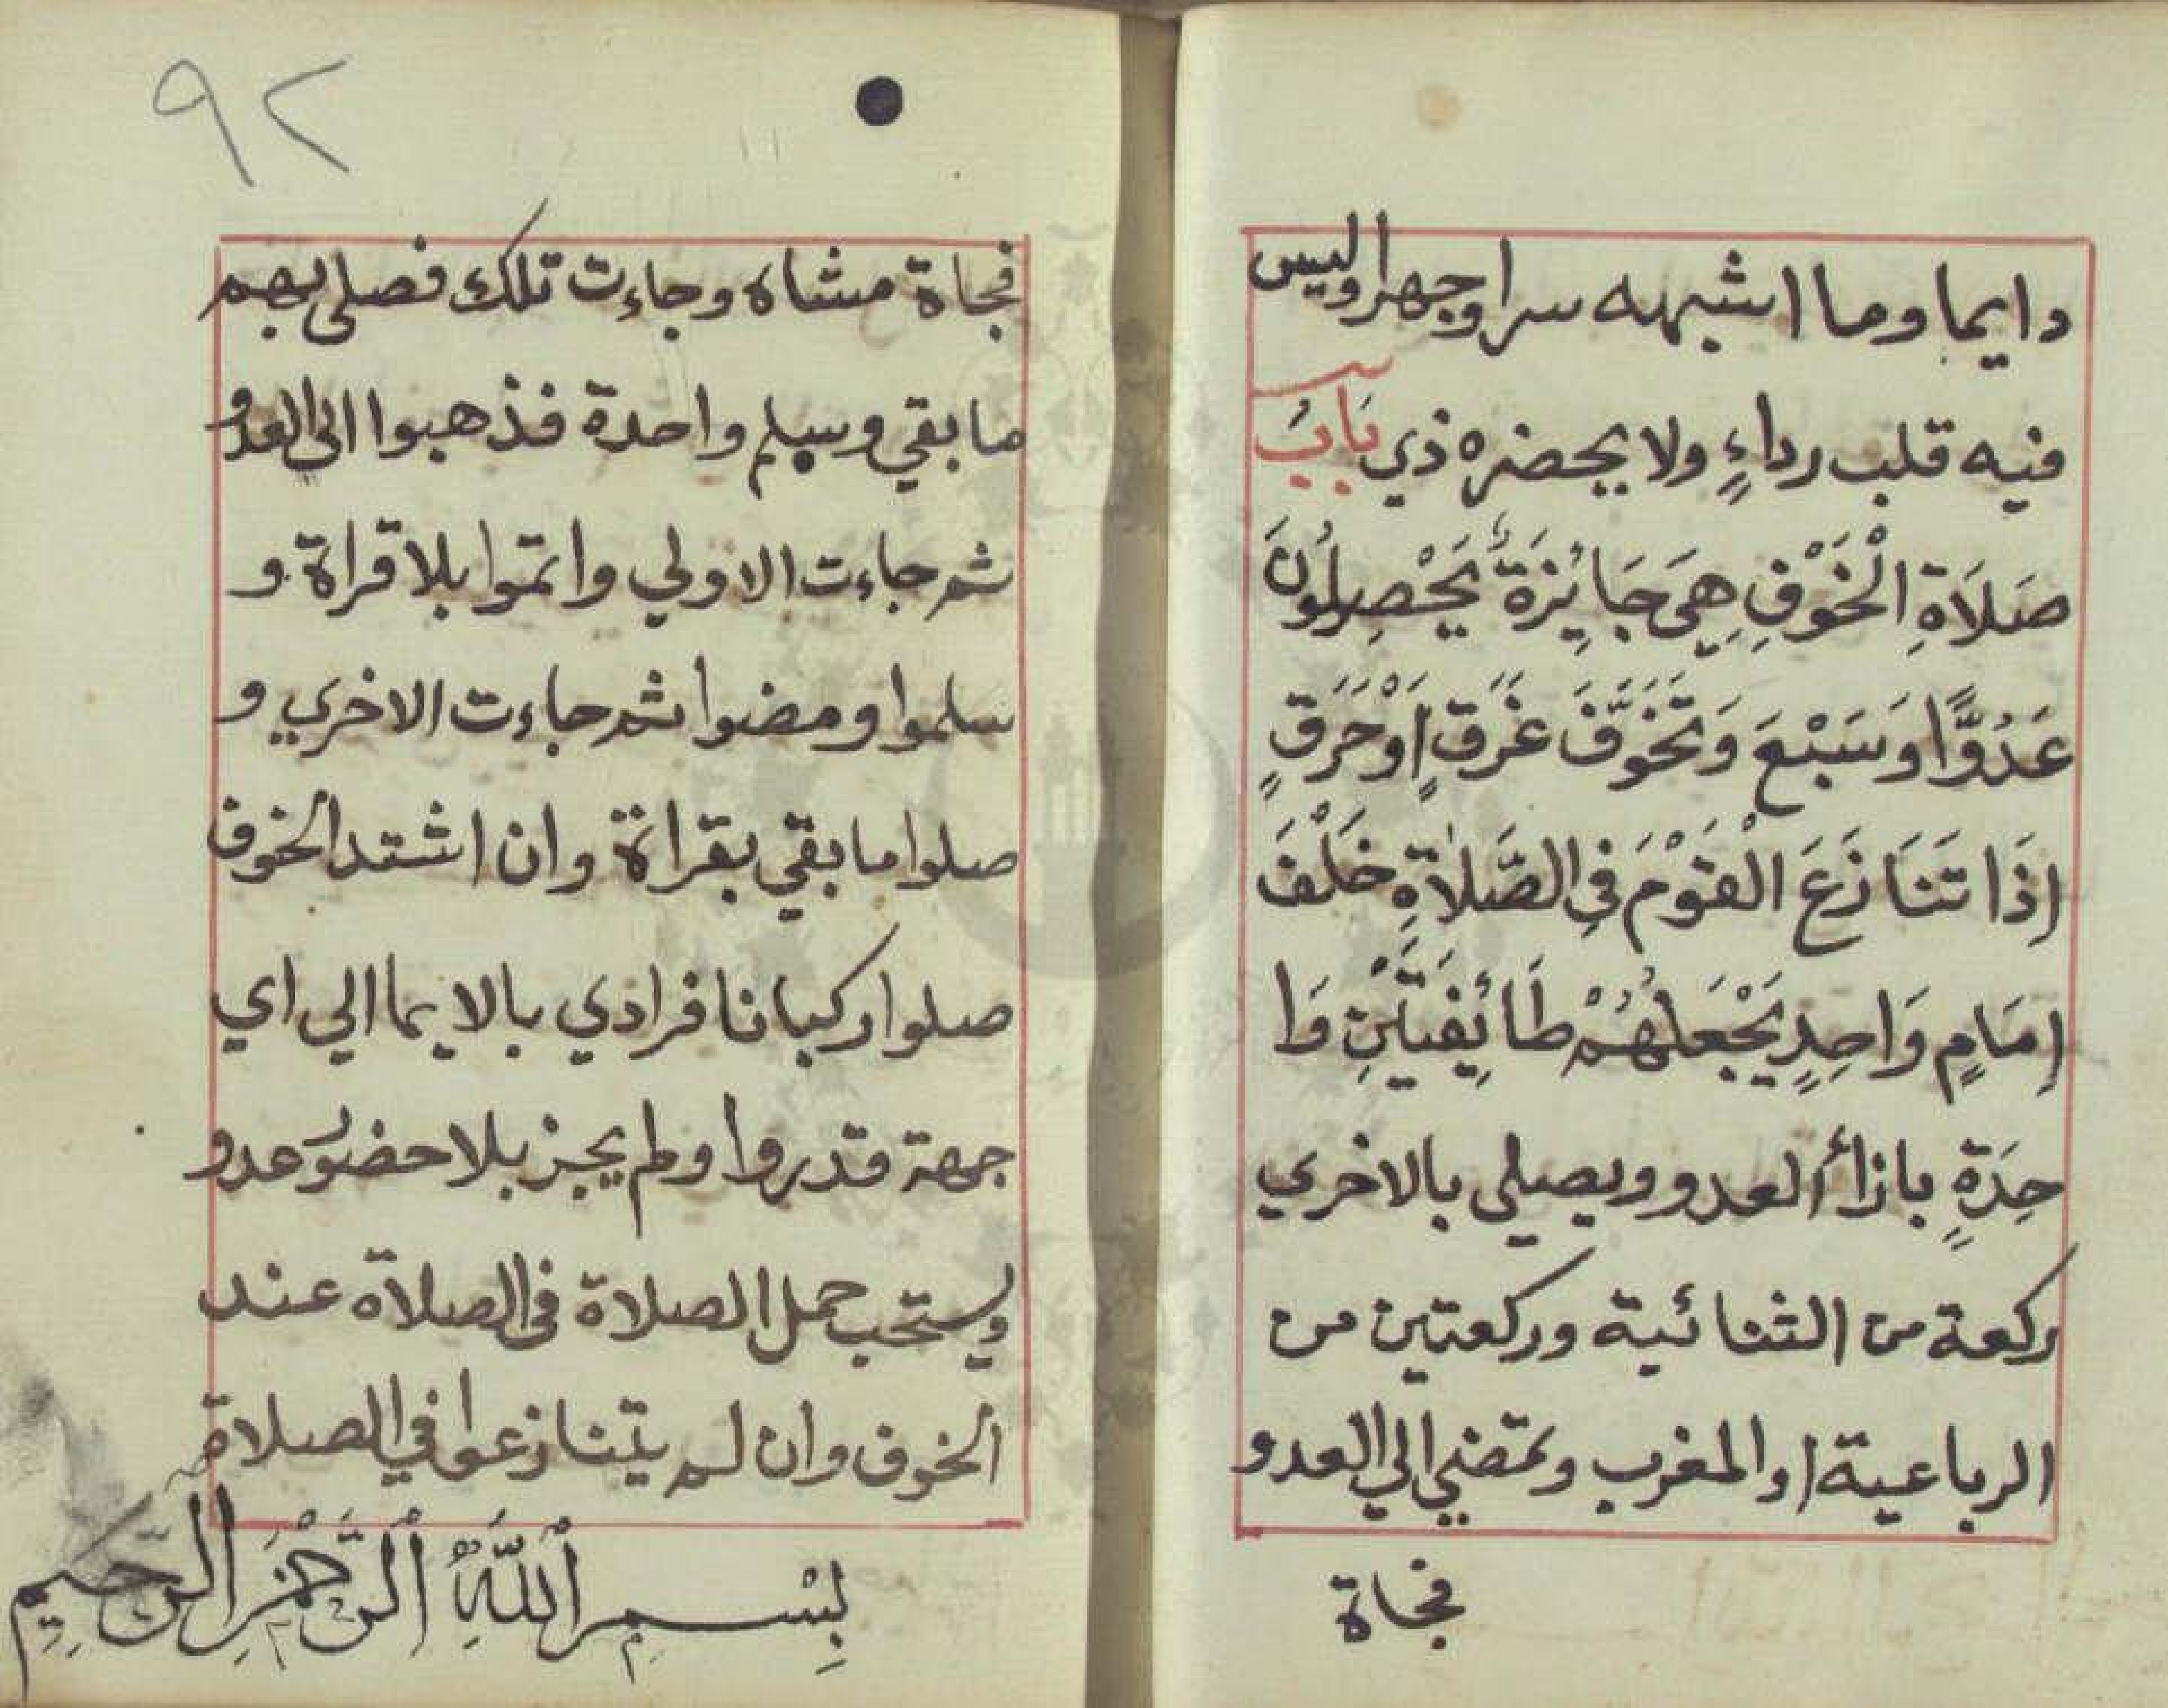 دايما وما اشبهه سرا وجهرا وليس
فيه قلب رداءٍ ولا يحضره ذي بَابُ
صَلَاةِ الْخَوْفِ هِيَ جَائِزَةٌ يَحْصِلُونَ
عَدُوًّا وَسَبْعَ وَتَخَوَّفَ غَرَقٍ اَوْ حَرَقٍ
اِذَا تَنَازَعَ الْقَوْمَ فِي الصَّلَاةِ خَلْفَ
اِمَامٍ وَاحِدٍ يَجْعَلُهُمْ طَائِفَتَيْنِ وَا
حِدَةٍ بازاأ العدو ويصلى بالاخري
ركعة من الثنائية وركعتين من
الرباعية او المغرب وتمضي الي العدو
فجاة
٩٢
فجاة مشاه وجاءت تلك فصلى بهم
ما بقي وسلم واحدة فذهبوا الى العدو
ثم جاءت الاولي واتموا بلا قراة و
سلموا ومضوا ثم جاءت الاخري و
صلوا ما بقي بقراة وان اشتد الخوف
صلوا ركبانا فرادي بالايما الي اي
جهة قدروا ولم يجز بلا حضور عدو
ويستحب حمل الصلاة في الصلاة عند
الخوف وان لم يتنازعوا في الصلاة
بِسْمِ اللَّهِ الرَّحْمَنِ الرَّحِيمِ